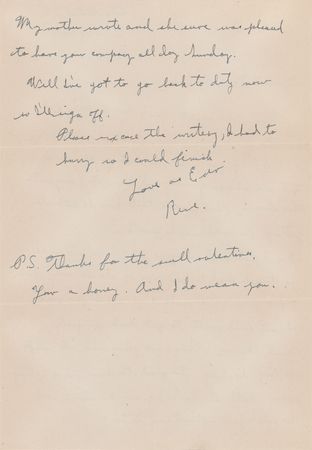 My mother wrote and she sure was pleased
to have your company all day Sunday.
Well I've got to go back to duty now
so I'll sign off.
Please excuse the writing, I had to
hurry so I could finish.
Love as Ever
P.S. Thanks for the swell valentines.
Your a honey. And I do mean you.